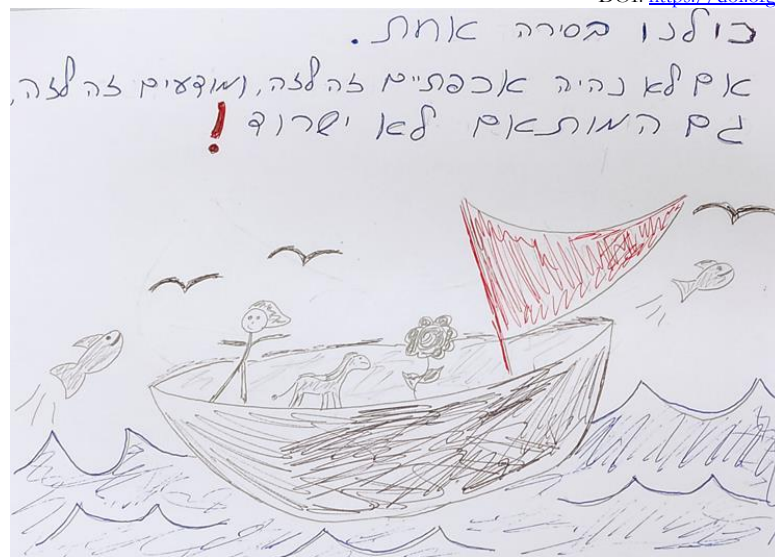 DOI: https://doi.org
כולנו בסירה אחת.
אם לא נהיה אכפתיים זה לזה, ומודעים זה לזה,
גם המותאם לא ישרוד!